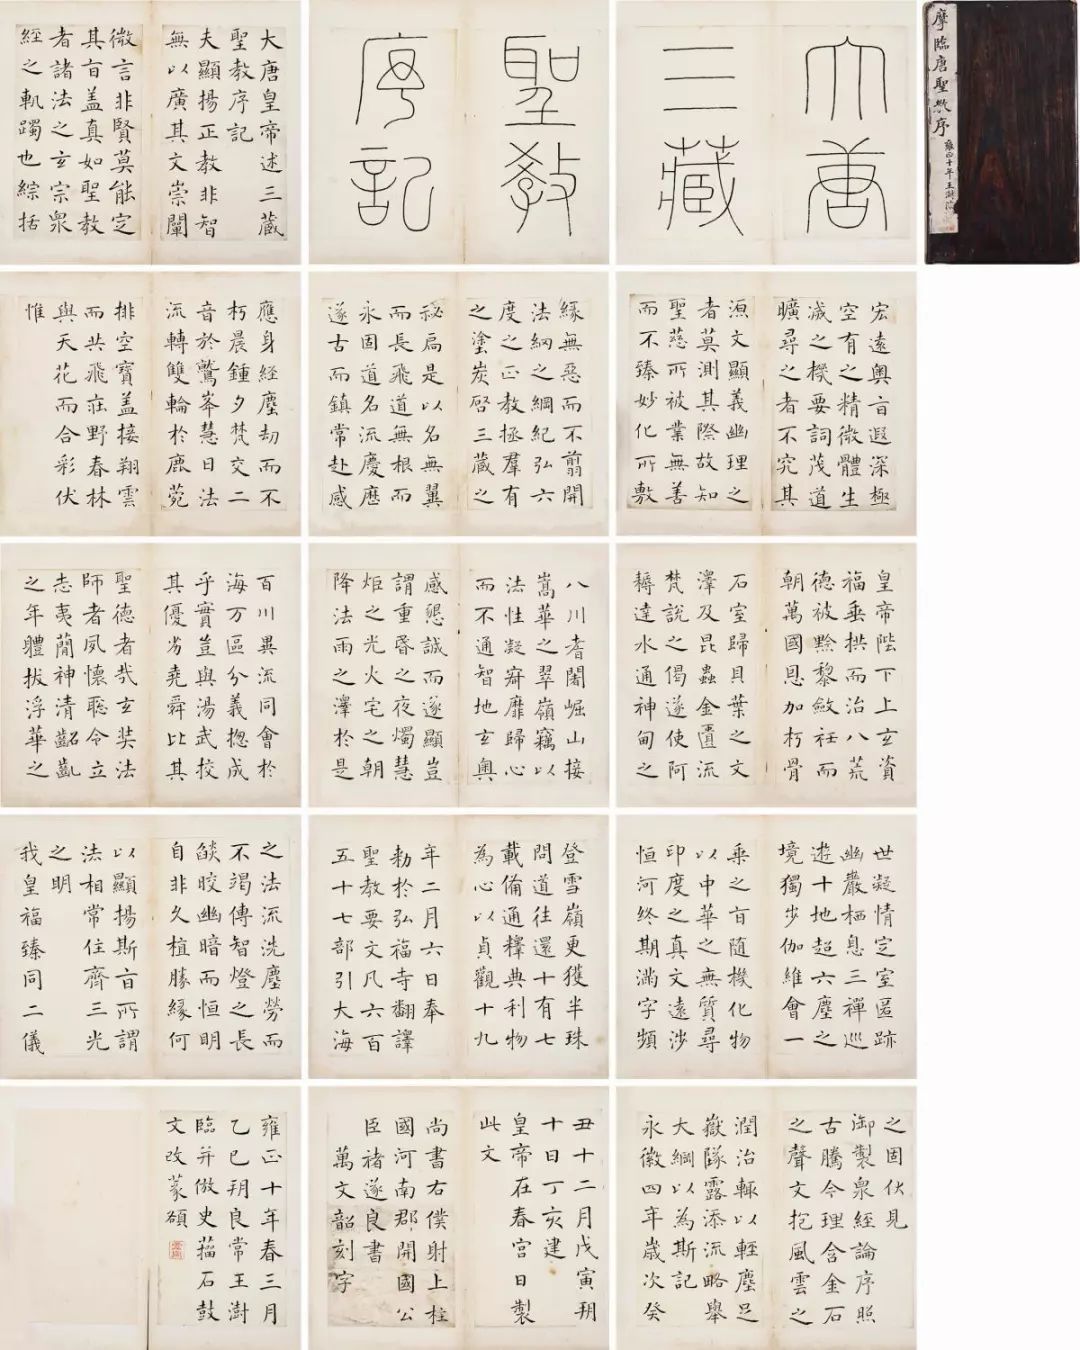 摩臨唐聖教序
雍正十年王澍
大唐
三藏
聖教
序記
大唐皇帝述三藏
聖教序記
夫顯揚正教非智
無以廣其文崇闡
微言非賢莫能定
其旨盖真如聖教
者諸法之玄宗衆
經之軌躅也綜括
宏遠奧旨遐深極
空有之精微體生
滅之機要詞茂道
曠尋之者不究其
源文顯義幽理之
者莫測其際故知
聖慈所被業無善
而不臻妙化所敷
緣無惡而不翦開
法網之綱紀弘六
度之正教拯羣有
之塗炭啓三藏之
祕扃是以名無翼
而長飛道無根而
永固道名流慶歷
遂古而鎮常赴感
應身經塵劫而不
朽晨鍾夕梵交二
音於鷲峯慧日法
流轉雙輪於鹿菀
排空寶盖接翔雲
而共飛莊野春林
與天花而合彩伏
惟
皇帝陛下上玄資
福垂拱而治八荒
德被黔黎斂衽而
朝萬國恩加朽骨
石室歸貝葉之文
澤及昆蟲金匱流
梵說之偈遂使阿
耨達水通神甸之
八川耆闍崛山接
嵩華之翠嶺竊以
法性凝寂靡歸心
而不通智地玄奧
感懇誠而遂顯豈
謂重昏之夜燭慧
炬之光火宅之朝
降法雨之澤於是
百川異流同會於
海万區分義揔成
乎實豈與湯武挍
其優劣堯舜比其
聖德者哉玄奘法
師者夙懷聡令立
志夷蕳神清齠齔
之年體拔浮華之
世凝情定室匿跡
幽巖栖息三禪巡
遊十地超六塵之
境獨步伽維會一
乘之旨隨機化物
以中華之無質尋
印度之真文遠涉
恒河終期滿字頻
登雪嶺更獲半珠
問道往還十有七
載備通釋典利物
為心以貞觀十九
年二月六日奉
勅於弘福寺翻譯
聖教要文凡六百
五十七部引大海
之法流洗塵勞而
不竭傳智燈之長
燄皎幽暗而恒明
自非久植勝緣何
以顯揚斯旨所謂
法相常住齊三光
之明
我皇福臻同二儀
之固伏見
御製衆經論序照
古騰今理含金石
之聲文抱風雲之
潤治輒以輕塵足
嶽墜露添流略舉
大綱以為斯記
永徽四年歲次癸
丑十二月戊寅朔
十日丁亥建
皇帝在春宮日製
此文
尚書右僕射上柱
國河南郡開國公
臣褚遂良書
萬文韶刻字
雍正十年春三月
乙巳朔良常王澍
臨并倣史籀石鼓
文改篆額